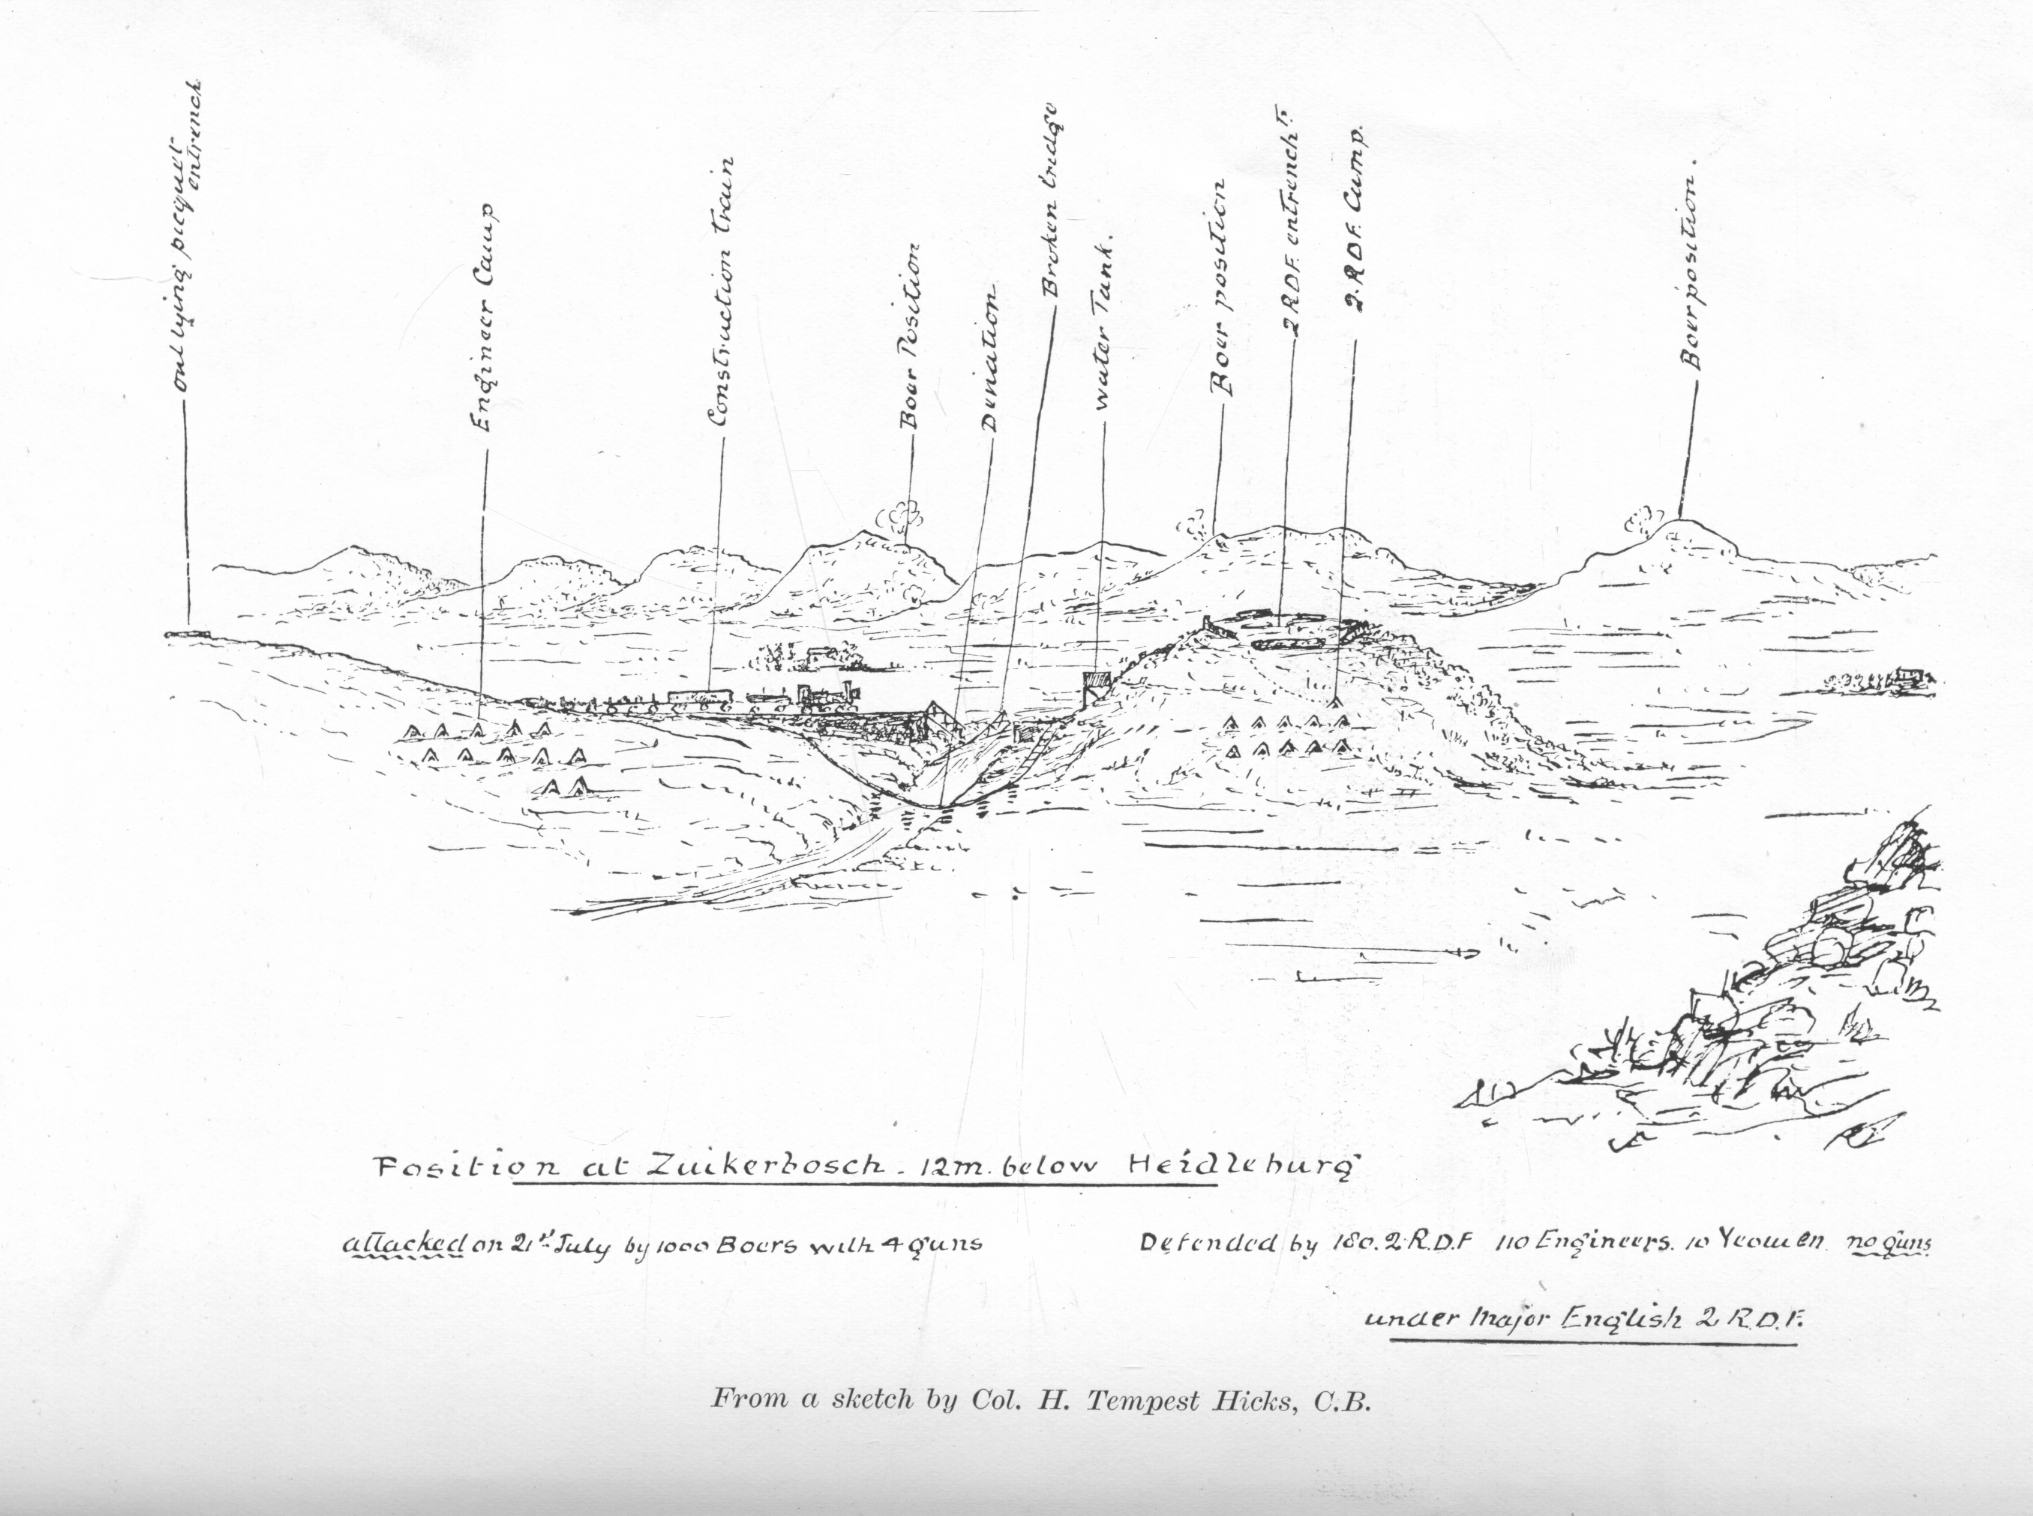 out lying picquet
entrench
Engineer Camp
Construction train
Boer Position
Deviation
Broken bridge
water Tank.
Boer position
2 RDF. entrench.ts
2. R.D.F. Camp.
Boer position.
Position at Zuikerbosch - 12m. below Heidleburg
attacked on 21st July by 1000 Boers with 4 guns
Defended by 180. 2 R.D.F 110 Engineers. 10 Yeomen. no guns
under Major English 2 R.D.F.
From a sketch by Col. H. Tempest Hicks, C.B.